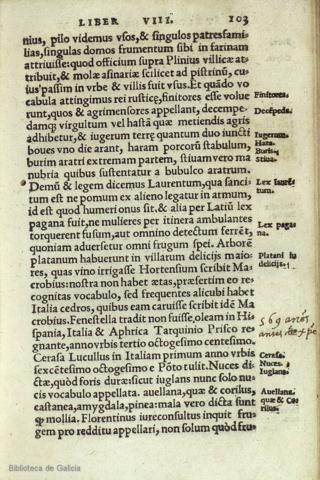 LIBER VIII. 103
nius, pilo videmus vsos, & singulos patresfami⸗
lias, singulas domos frumentum sibi in farinam
attriuisse: quod officium supra Plinius villicæ at⸗
tribuit, & molæ asinariæ scilicet ad pistrinū, cu⸗
ius passim in vrbe & villis fuit vsus. Et quādo vo
cabula attingimus rei rusticę, finitores esse volue Finitores.
runt, quos & agrimensores appellant, decempe⸗ Decẽpeda.
damq; virgultum vel hastā quæ metiendis agris
adhibetur, & iugerum terrę quantum duo iuncti Iugerum.
boues vno die arant, haram porcorū stabulum, Hara.
burim aratri extremam partem, stiuam vero ma Buris.
nubria quibus sustentatur a bubulco aratrum. Stiua.
Demū & legem dicemus Laurentum, qua sanci⸗ Lex laurẽ
tum est ne pomum ex alieno legatur in armum, tum.
id est quod humeri onus sit. & alia per Latiū lex
pagana fuit, ne mulieres per itinera ambulantes Lex paga
torquerent fusum, aut omnino detectum ferrẽt, na.
quoniam aduersetur omni frugum spei. Arborē
platanum habuerunt in villarum delicijs maio⸗ Platani in
res, quas vino irrigasse Hortensium scribit Ma⸗ delicijs.
crobius: nostra non habet ætas, præsertim eo re⸗
cognitas vocabulo, sed frequentes alicubi habet
Italia cedros, quibus eam caruisse scribit idē Ma
crobius. Fenestella tradit non fuisse, oleam in His⸗
pania, Italia & Aphrica Tarquinio Prisco re⸗ 569 anos
gnante, anno vrbis tertio octogesimo centesimo.
Cerasa Lucullus in Italiam primum anno vrbis Cerasa.
sexcētesimo octogesimo e Pōto tulit. Nuces di⸗ Nuces.
ctæ, quòd foris dura sicut iuglans nunc solo nu⸗ Iuglans.
cis vocabulo appellata. auellana, quæ & corilus, Auellana.
castanea, amygdala, pinea: mala vero dicta sunt quæ & Co
q; mollia. Florentinus iureconsultus inquit fru⸗ rilus.
gem pro redditu appellari, non solum quòd fru⸗
Biblioteca de Galicia